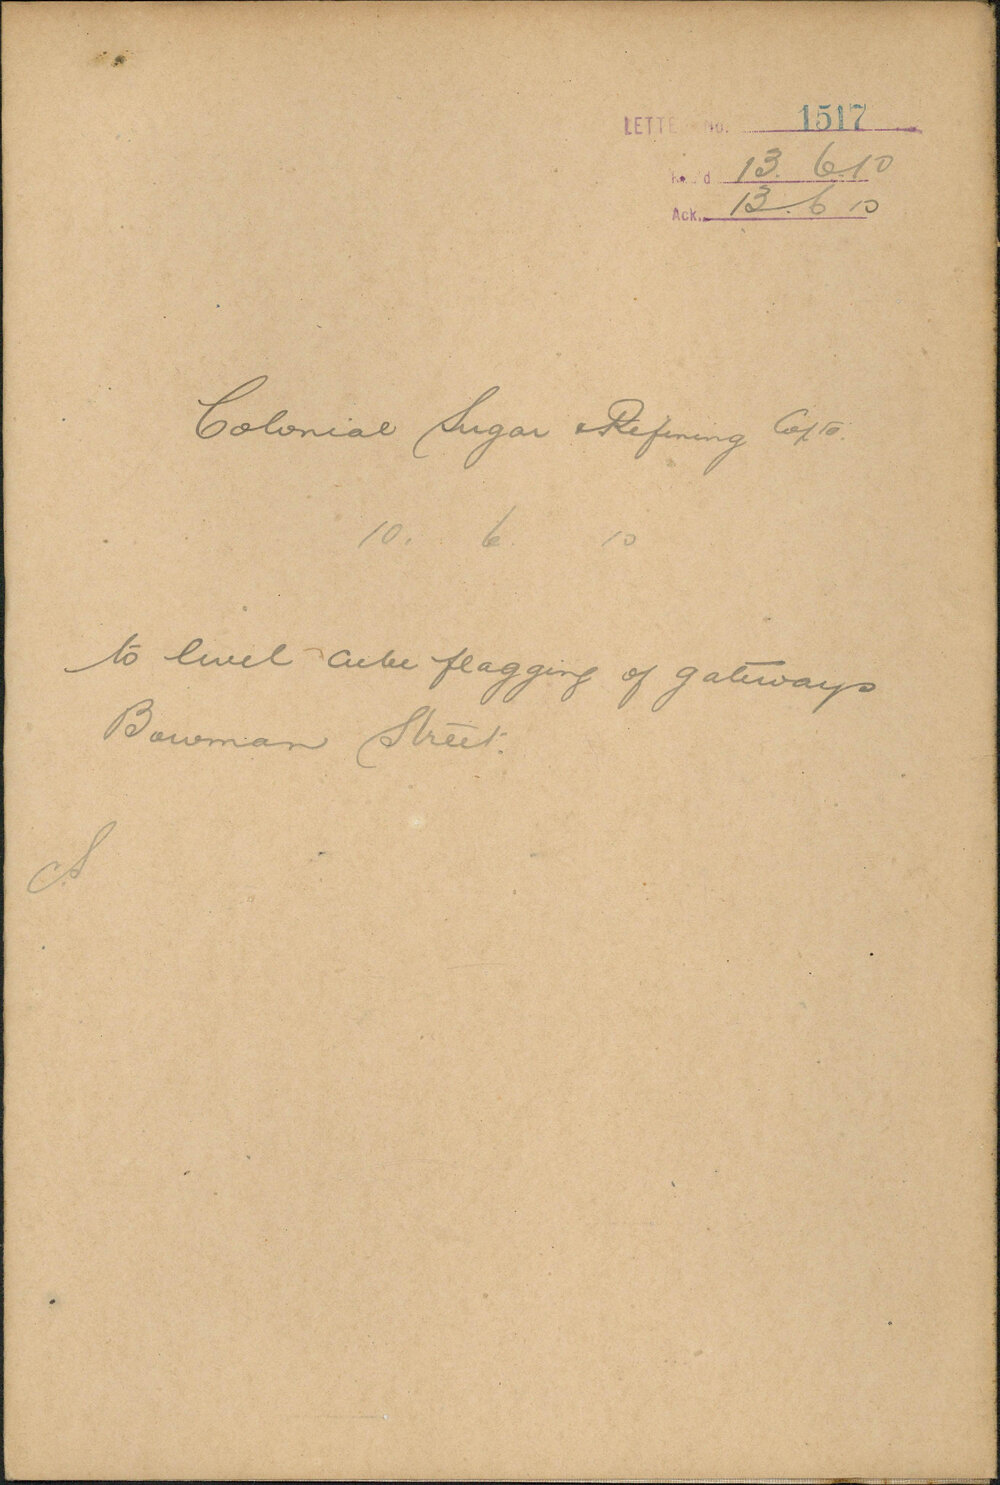 LETTER No. 1517
Rec'd 13. 6. 10
Ack. 13. 6 10
Colonial Sugar Refining
10. 6. 10
to level cube flagging of gateways
Bowman Street.